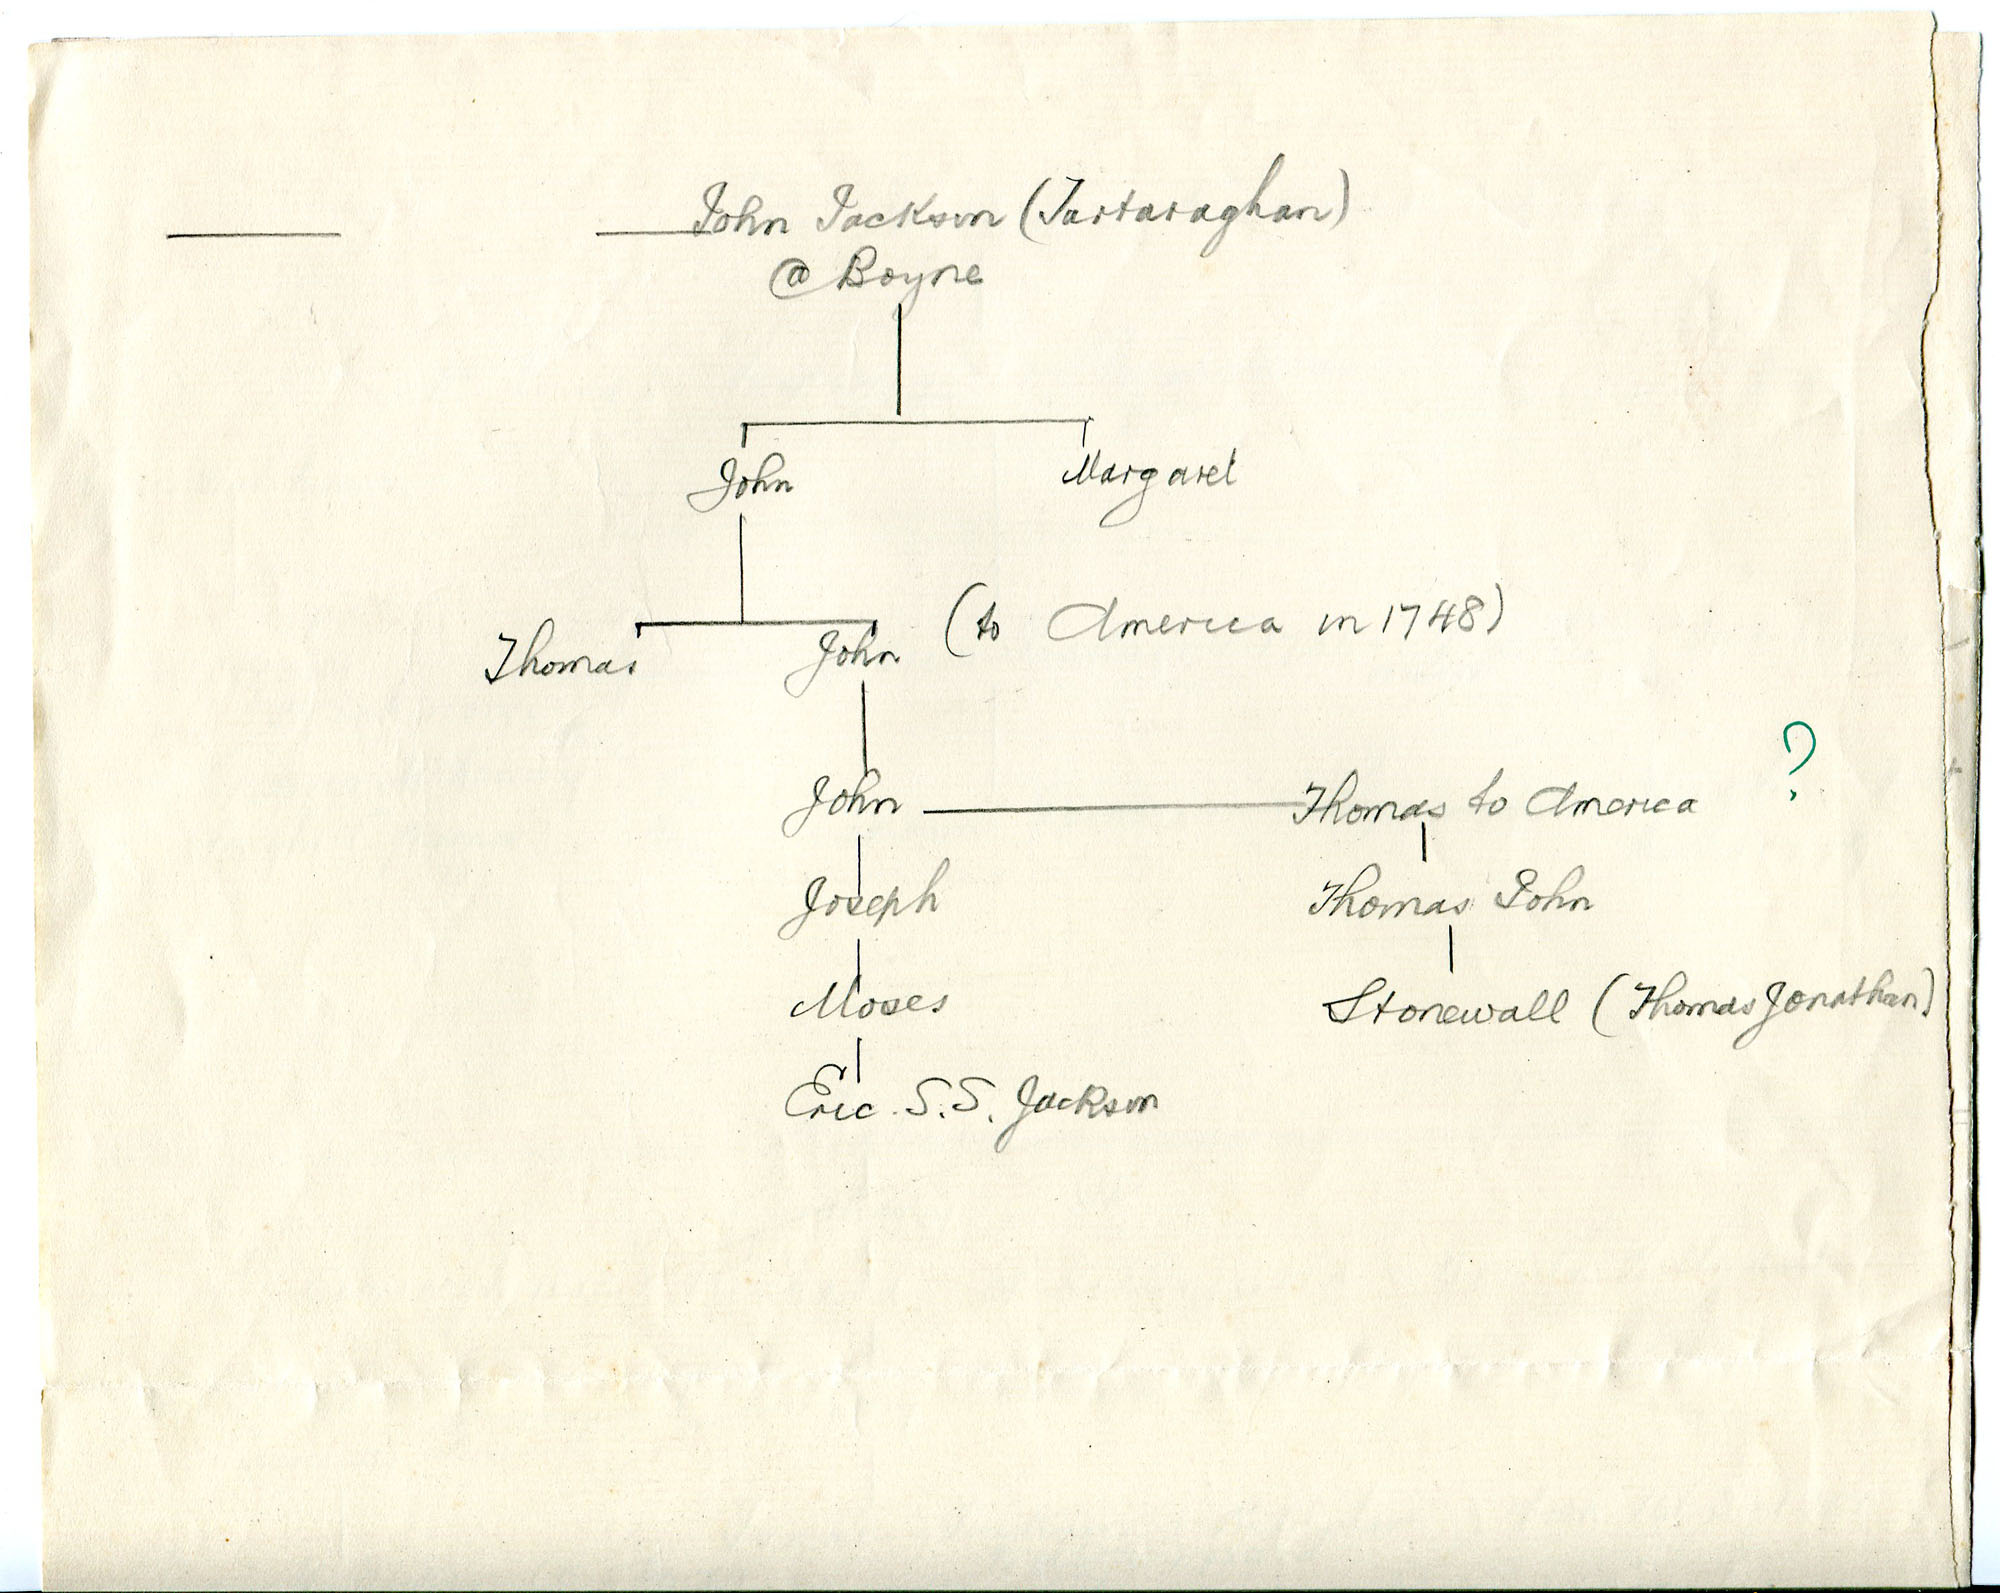 John Jackson (Tartaraghan)
@ Boyne
John Margaret
Thomas John (to America in 1748)
?
John Thomas to America
Joseph Thomas John
Moses Stonewall (Thomas Jonathan)
Eric S.S. Jackson